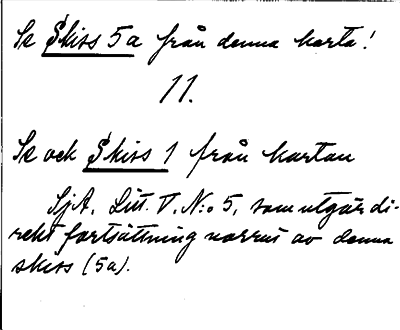 Se Skiss 5a från denna karta!
11.
Se och Skiss 1 från kartan
SjA. Litt. V. N:o 5, som utgör di-
rekt fortsättning norrut av denna
skiss (5a).